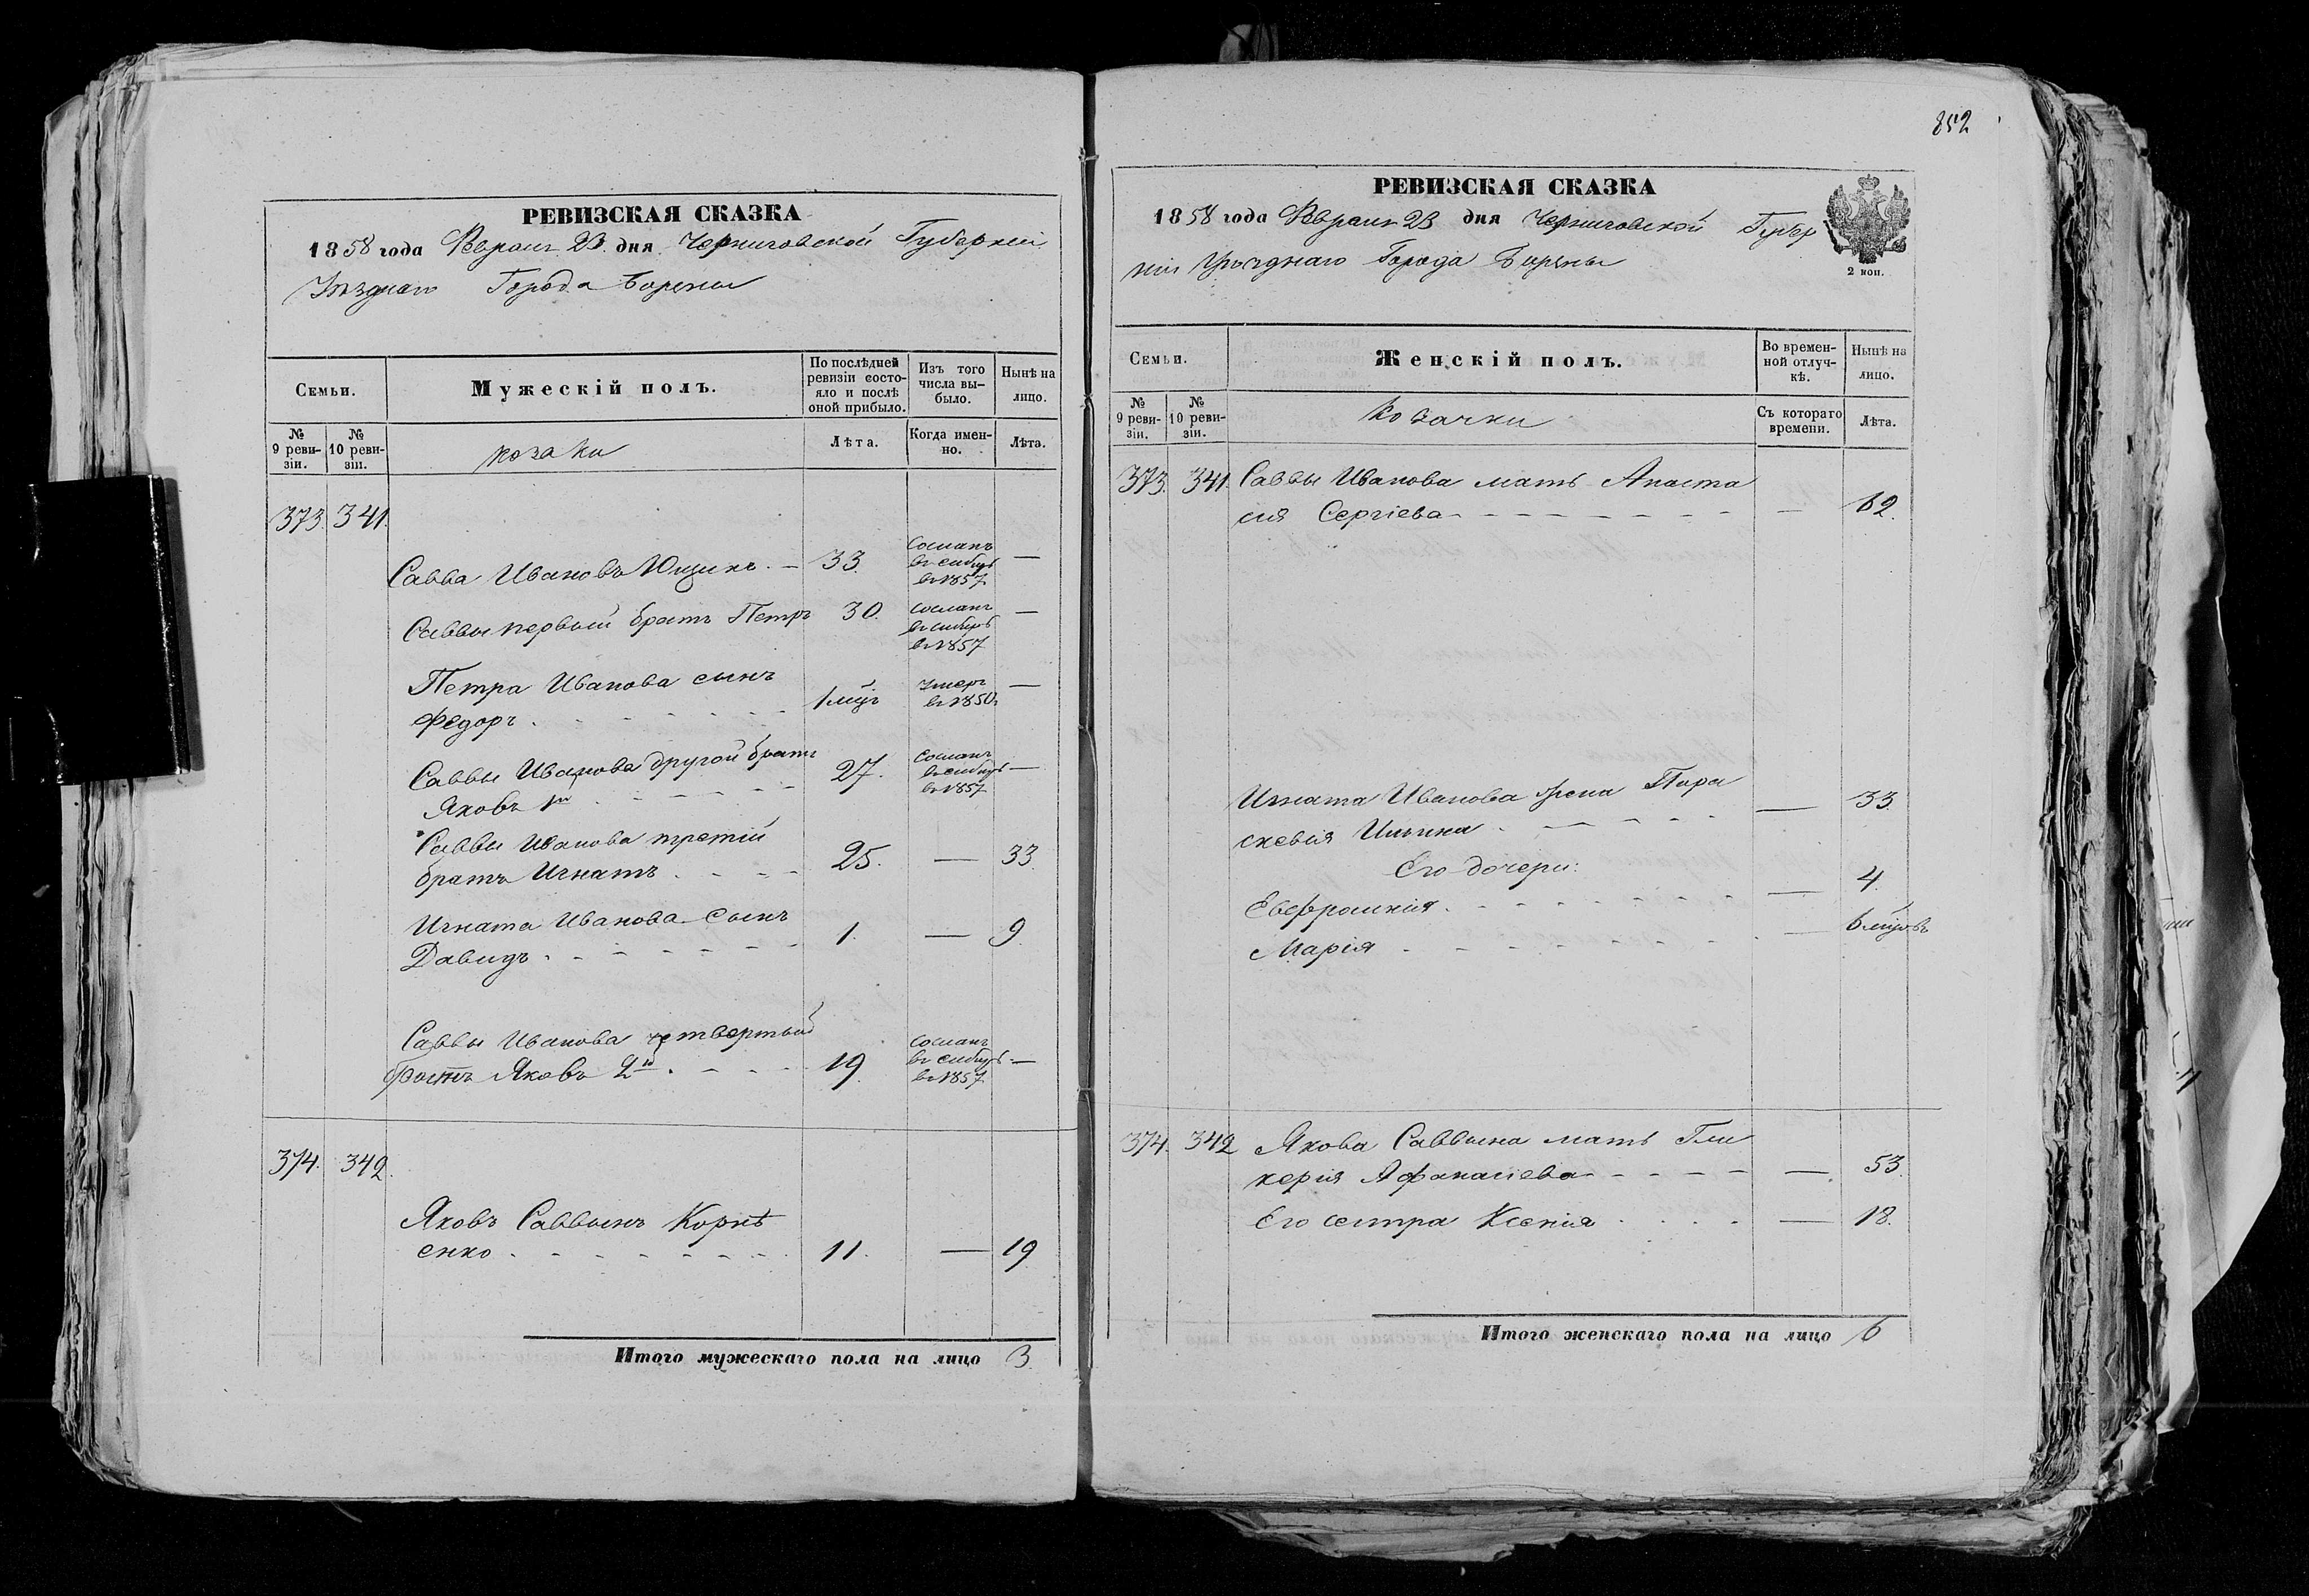 РЕВИЗСКАЯ СКАЗКА
1858 года Февраля 23 дня Черниговской Губерніи
Уѣзднаго Города Борзны
Семьи.
Мужескій полъ.
По послѣдней ревизіи состояло и послѣ оной прибыло.
Изъ того числа выбыло.
Нынѣ на лицо.
№ 9 ревизіи.
№ 10 ревизіи.
козаки
Лѣта.
Когда именно.
Лѣта.
373. 341.
Савва Ивановъ Ющенко. — 33. Сосланъ въ сибирь въ 1857 —
Саввы первый братъ Петръ 30. сосланъ въ сибирь въ 1857 —
Петра Иванова сынъ
Федоръ 1 мцъ умеръ въ 1850 —
Саввы Иванова другой братъ
Яковъ 1й 27. Сосланъ въ сибирь въ 1857 —
Саввы Иванова третій
братъ Игнатъ 25. — 33.
Игната Иванова сынъ
Давидъ 1. — 9.
Саввы Иванова четвертый
братъ Яковъ 2й 19. Сосланъ въ сибирь въ 1857 —
374. 342.
Яковъ Саввинъ Корнѣ
енко 11. — 19
Итого мужескаго пола на лицо 3
852
РЕВИЗСКАЯ СКАЗКА
1858 года Февраля 23 дня Черниговской Губер
ніи Уѣзднаго Города Борзны
2 коп.
Семьи.
Женскій полъ.
Во временной отлучкѣ.
Нынѣ на лицо.
№ 9 ревизіи.
№ 10 ревизіи.
Козачки
Съ котораго времени.
Лѣта.
373. 341. Саввы Иванова мать Анаста
сія Сергіева — 62.
Игната Иванова жена Пара
скевія Ильина — 33.
Его дочери:
Евфросинія — 4.
Марія — 6 мцовъ
374. 342 Якова Саввина мать Гли
керія Афанасіева — 53.
Его сестра Ксенія — 18.
Итого женскаго пола на лицо 6